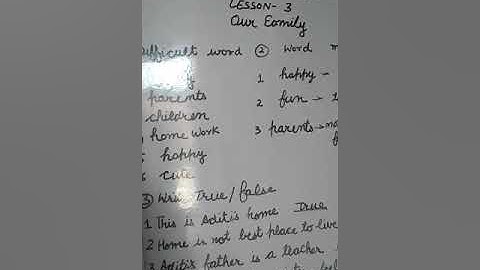 LESSON- 3
Our Family
Difficult word ② Word
parents
children
home work
5 happy
6 cute
1 happy -
2 fun →
3 parents →
③ Write True/false
1 This is Aditi's home True
2 Home is not best place to live
3 Aditi's father is a teacher